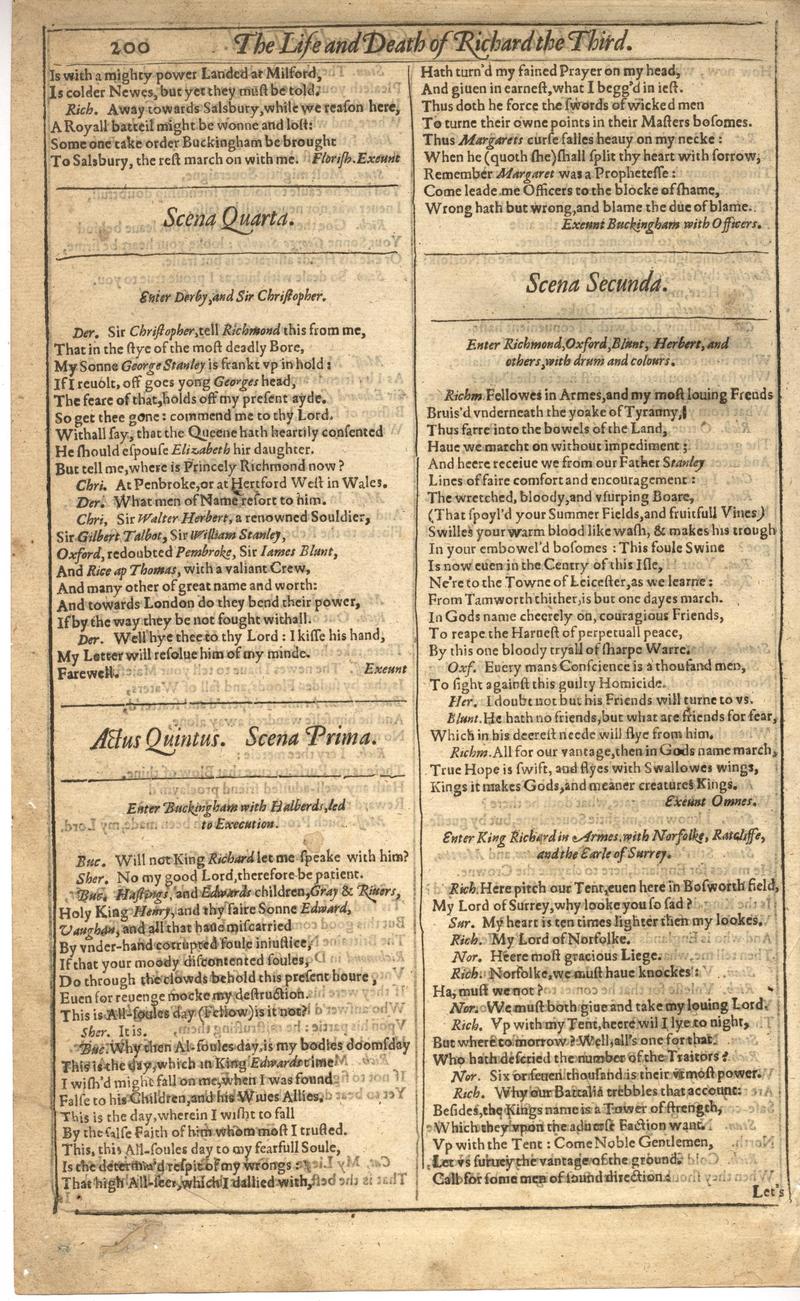 200 The Life and Death of Richard the Third.
Is with a mighty power Landed at Milford,
Is colder Newes, but yet they muſt be told.
Rich. Away towards Salsbury, while we reaſon here,
A Royall batteil might be wonne and loſt:
Some one take order Buckingham be brought
To Salsbury, the reſt march on with me. Floriſh. Exeunt
Scena Quarta.
Enter Derby, and Sir Chriſtopher.
Der. Sir Chriſtopher, tell Richmond this from me,
That in the ſtye of the moſt deadly Bore,
My Sonne George Stanley is frankt vp in hold:
If I reuolt, off goes yong Georges head,
The feare of that, holds off my preſent ayde.
So get thee gone: commend me to thy Lord.
Withall ſay, that the Queene hath heartily conſented
He ſhould eſpouſe Elizabeth hir daughter.
But tell me, where is Princely Richmond now?
Chri. At Penbroke, or at Hertford Weſt in Wales.
Der. What men of Name reſort to him.
Chri, Sir Walter Herbert, a renowned Souldier,
Sir Gilbert Talbot, Sir William Stanley,
Oxford, redoubted Pembroke, Sir Iames Blunt,
And Rice ap Thomas, with a valiant Crew,
And many other of great name and worth:
And towards London do they bend their power,
If by the way they be not fought withall.
Der. Well hye thee to thy Lord: I kiſſe his hand,
My Letter will reſolue him of my minde.
Farewell. Exeunt
Actus Quintus. Scena Prima.
Enter Buckingham with Halberds, led
to Execution.
Buc. Will not King Richard let me ſpeake with him?
Sher. No my good Lord, therefore be patient.
Buc. Haſtings, and Edwards children, Gray & Riuers,
Holy King Henry, and thy faire Sonne Edward,
Vaughan, and all that haue miſcarried
By vnder-hand corrupted foule iniuſtice,
If that your moody diſcontented ſoules,
Do through the clowds behold this preſent houre,
Euen for reuenge mocke my deſtruction.
This is All-ſoules day (Fellow) is it not?
Sher. It is.
Buc. Why then Al-ſoules day, is my bodies doomſday
This is the day, which in King Edwards time
I wiſh'd might fall on me, when I was found
Falſe to his Children, and his Wiues Allies.
This is the day, wherein I wiſht to fall
By the falſe Faith of him whom moſt I truſted.
This, this All-ſoules day to my fearfull Soule,
Is the determin'd reſpit of my wrongs:
That high All-ſeer, which I dallied with,
Hath turn'd my fained Prayer on my head,
And giuen in earneſt, what I begg'd in ieſt.
Thus doth he force the ſwords of wicked men
To turne their owne points in their Maſters boſomes.
Thus Margarets curſe falles heauy on my necke:
When he (quoth ſhe) ſhall ſplit thy heart with ſorrow,
Remember Margaret was a Propheteſſe:
Come leade me Officers to the blocke of ſhame,
Wrong hath but wrong, and blame the due of blame.
Exeunt Buckingham with Officers.
Scena Secunda.
Enter Richmond, Oxford, Blunt, Herbert, and
others, with drum and colours.
Richm. Fellowes in Armes, and my moſt louing Frends
Bruis'd vnderneath the yoake of Tyranny,
Thus farre into the bowels of the Land,
Haue we marcht on without impediment;
And heere receiue we from our Father Stanley
Lines of faire comfort and encouragement:
The wretched, bloody, and vſurping Boare,
(That ſpoyl'd your Summer Fields, and fruitfull Vines)
Swilles your warm blood like waſh, & makes his trough
In your embowel'd boſomes: This foule Swine
Is now euen in the Centry of this Iſle,
Ne're to the Towne of Leiceſter, as we learne:
From Tamworth thither, is but one dayes march.
In Gods name cheerely on, couragious Friends,
To reape the Harueſt of perpetuall peace,
By this one bloody tryall of ſharpe Warre.
Oxf. Euery mans Conſcience is a thouſand men,
To fight againſt this guilty Homicide.
Her. I doubt not but his Friends will turne to vs.
Blunt. He hath no friends, but what are friends for fear,
Which in his deereſt neede will flye from him.
Richm. All for our vantage, then in Gods name march,
True Hope is ſwift, and flyes with Swallowes wings,
Kings it makes Gods, and meaner creatures Kings.
Exeunt Omnes.
Enter King Richard in Armes, with Norfolke, Ratcliffe,
and the Earle of Surrey.
Rich. Here pitch our Tent, euen here in Boſworth field,
My Lord of Surrey, why looke you ſo ſad?
Sur. My heart is ten times lighter then my lookes.
Rich. My Lord of Norfolke.
Nor. Heere moſt gracious Liege.
Rich. Norfolke, we muſt haue knockes:
Ha, muſt we not?
Nor. We muſt both giue and take my louing Lord.
Rich. Vp with my Tent, heere wil I lye to night,
But where to morrow? Well, all's one for that.
Who hath deſcried the number of the Traitors?
Nor. Six or ſeuen thouſand is their vtmoſt power.
Rich. Why our Battalia trebbles that account:
Beſides, the Kings name is a Tower of ſtrength,
Which they vpon the aduerſe Faction want.
Vp with the Tent: Come Noble Gentlemen,
Let vs ſuruey the vantage of the ground.
Call for ſome men of ſound direction:
Let's